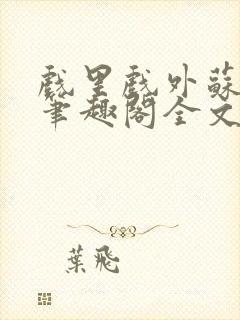 戲里戲外蘇
筆趣閣全文
葉飛